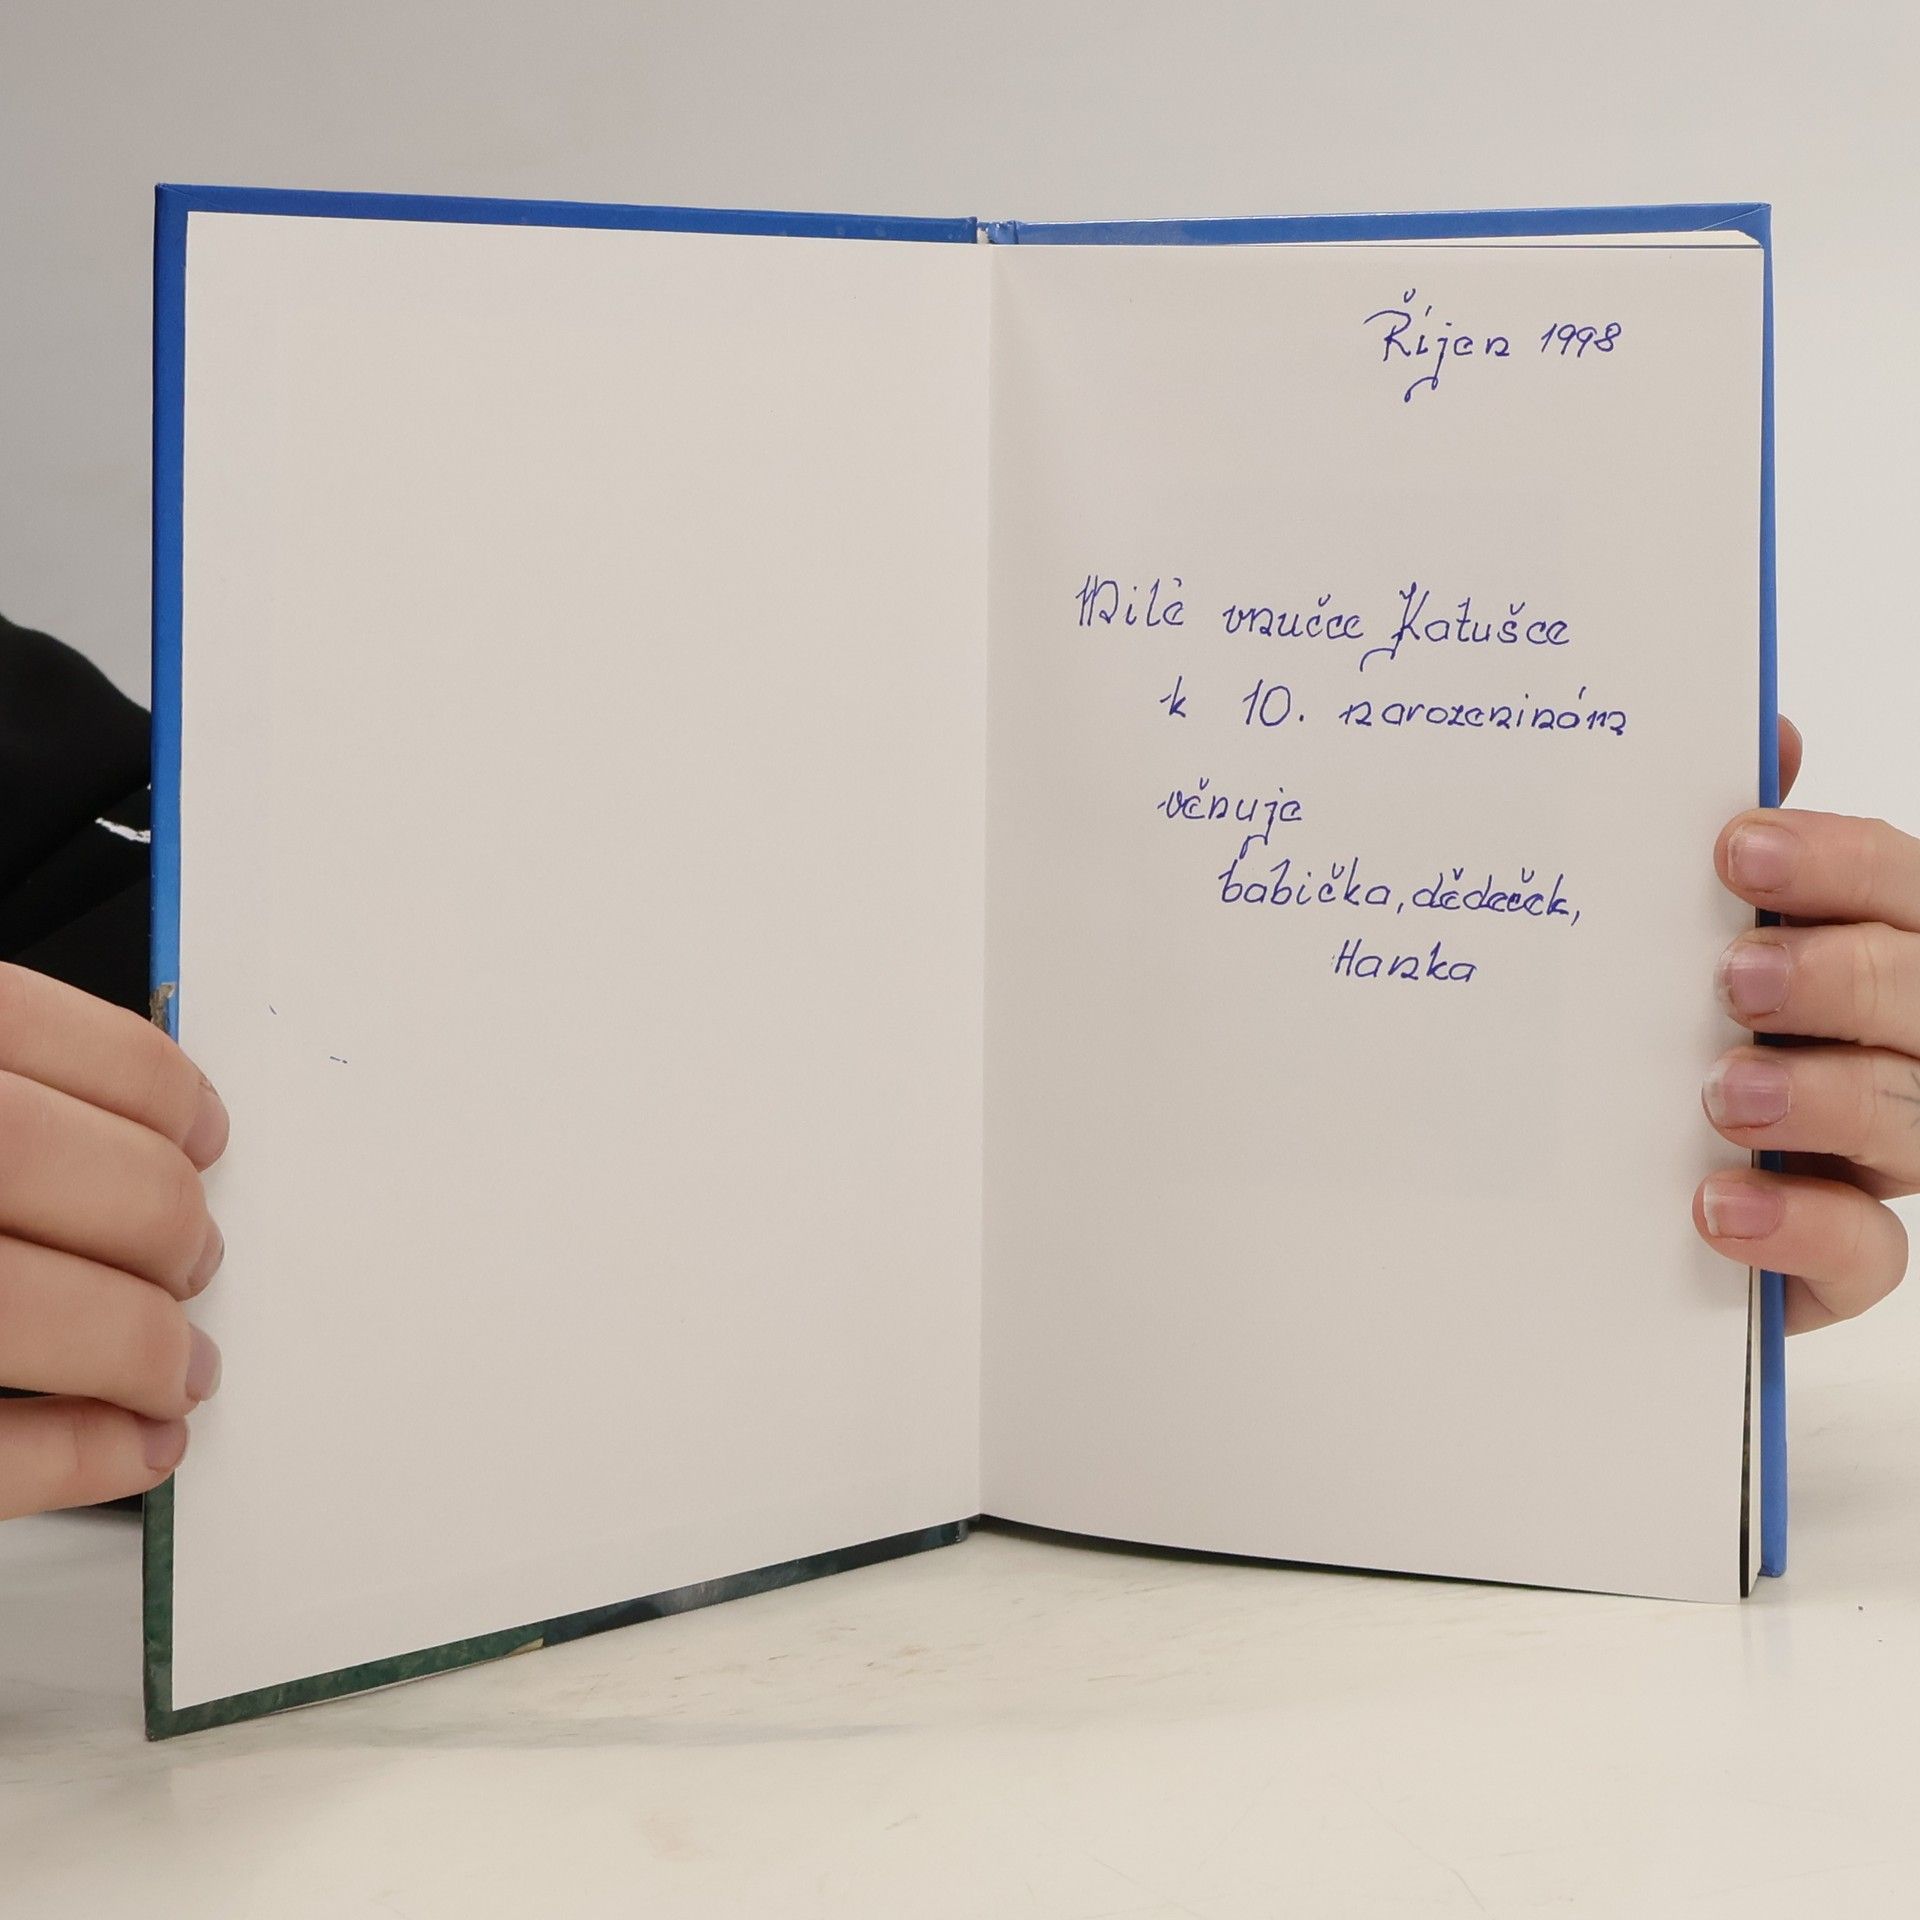 Říjen 1998
Milé vnučce Katušce
k 10. narozeninám
věnuje
babička, dědeček,
Hanka